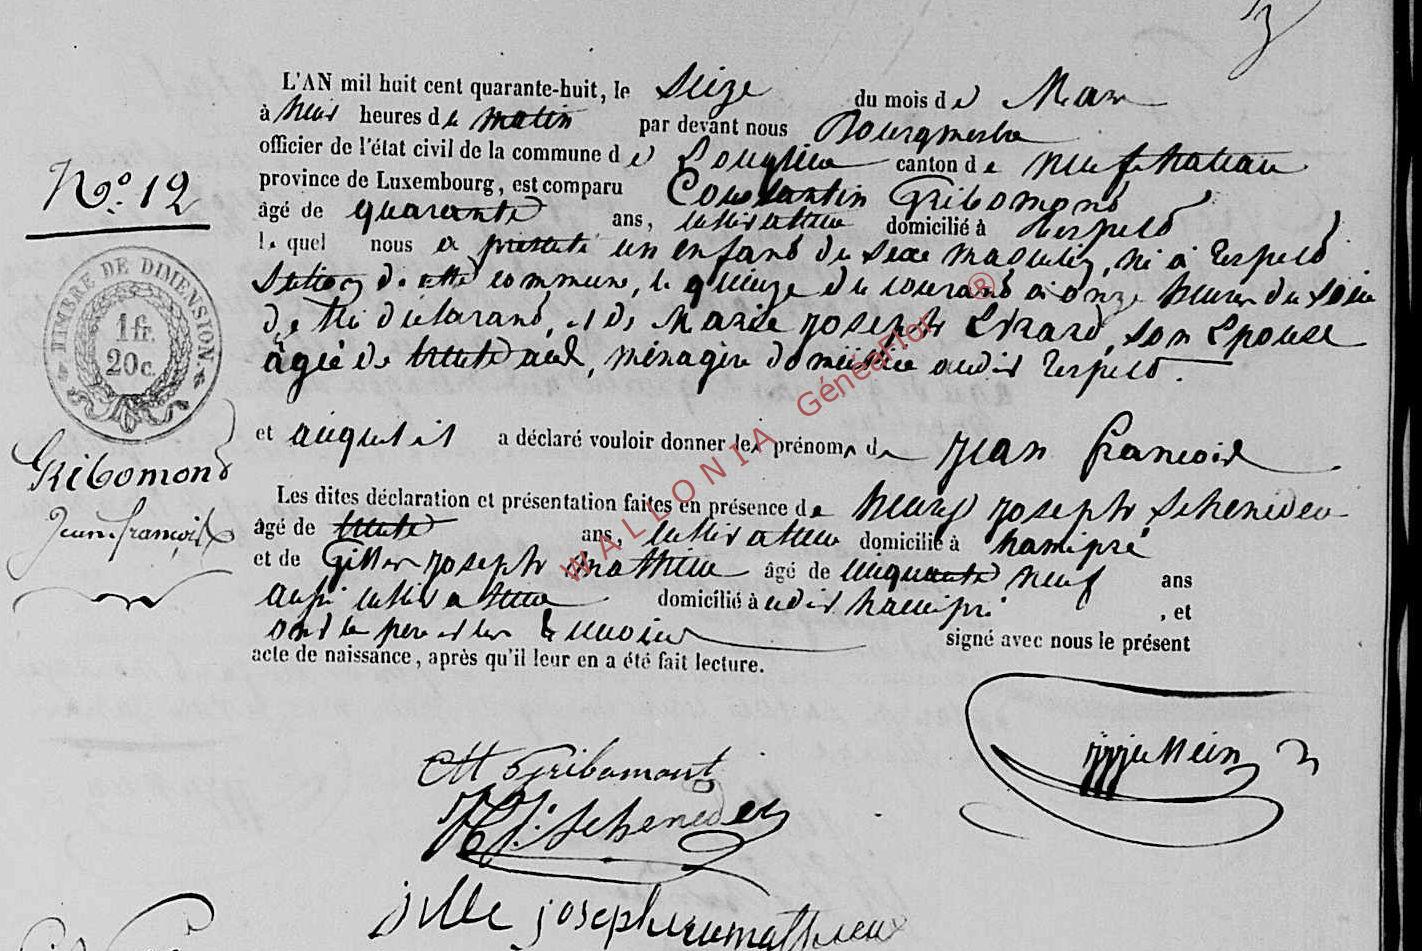 3
L'AN mil huit cent quarante-huit, le Seize du mois de Mars
à heures du matin par devant nous Bourgmestre
officier de l'état civil de la commune de Longlier canton de neufchateau
province de Luxembourg, est comparu Constantin Gribomont
âgé de quarante ans, cultivateur domicilié à Respelt
lequel nous a présenté un enfant du sexe masculin, né à Respelt
Section de cette commune, le quinze du courant à onze heures du soir
de lui déclarant, et de Marie joseph Evrard, son Epouse
âgée de trente ans, ménagère domiciliée audit Respelt.
et auquel il a déclaré vouloir donner les prénoms de jean françois
Les dites déclaration et présentation faites en présence de henry joseph Scheneder
âgé de trente ans, cultivateur domicilié à hamipré
et de Gilles joseph mathieu âgé de cinquante neuf ans
aussi cultivateur domicilié à udit hamipré, et
ont le père et les témoins signé avec nous le présent
acte de naissance, après qu'il leur en a été fait lecture.
N.o 12
TIMBRE DE DIMENSION
1 fr.
20c.
Gribomont
Jean-françois
Gribomont
H J. Scheneder
jille joseph mathieux
WALLONIA GénéaFlor ®